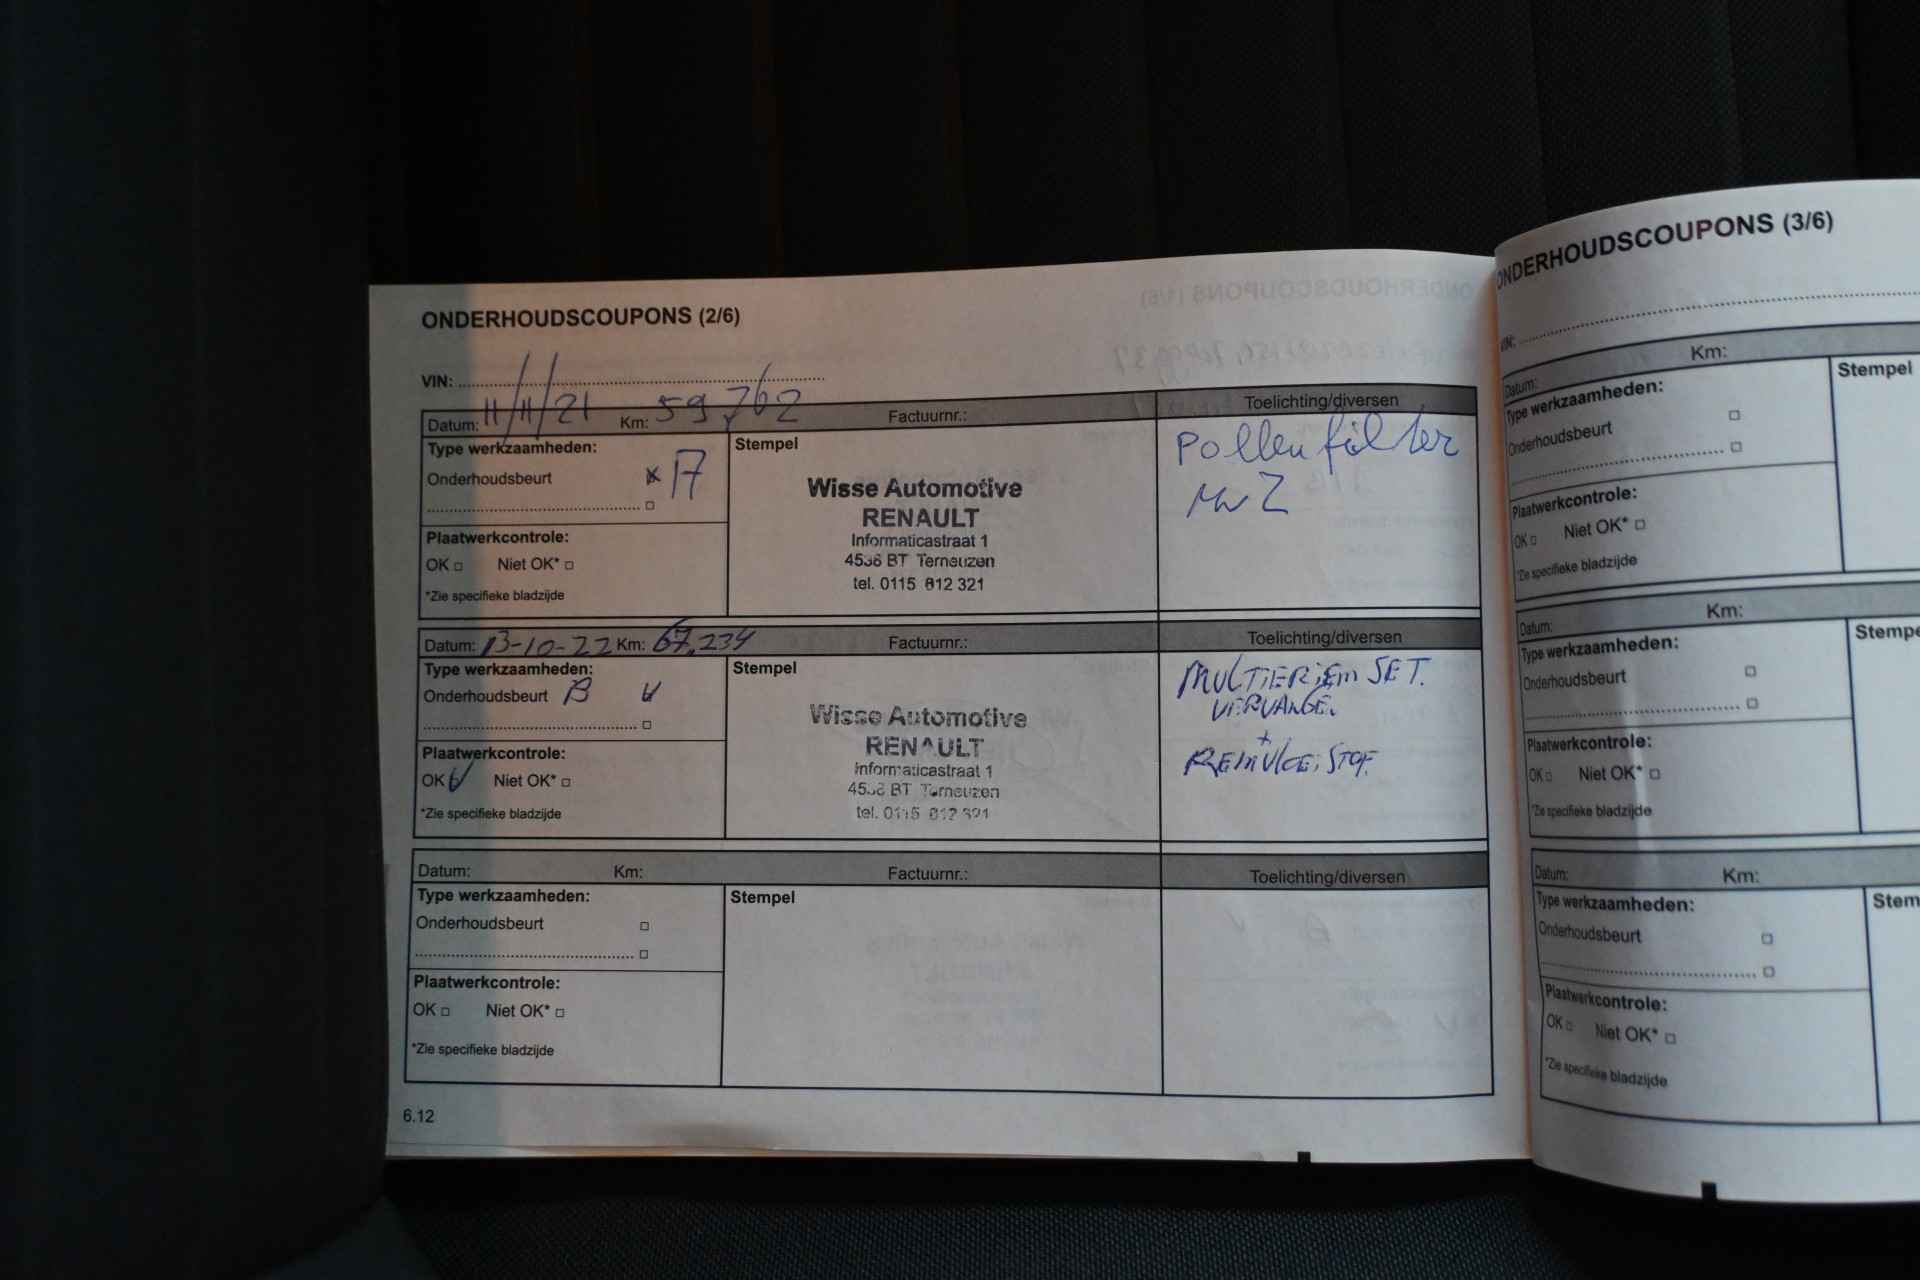 ONDERHOUDSCOUPONS (2/6)
VIN:
Datum: 11/11/21 Km: 59762 Factuurnr.: Toelichting/diversen
Type werkzaamheden:
Onderhoudsbeurt
Stempel
Wisse Automotive
RENAULT
Informaticastraat 1
4538 BT Terneuzen
tel. 0115 612 321
Pollenfilter
Plaatwerkcontrole:
OK Niet OK*
*Zie specifieke bladzijde
Datum: 13-10-22 Km: 67.234 Factuurnr.: Toelichting/diversen
Type werkzaamheden:
Onderhoudsbeurt B
Stempel
Wisse Automotive
RENAULT
Informaticastraat 1
4538 BT Terneuzen
tel. 0115 612 321
MULTIERIEM SET.
VERVANGE.
+
REMVLOEISTOF.
Plaatwerkcontrole:
OK Niet OK*
*Zie specifieke bladzijde
Datum: Km: Factuurnr.: Toelichting/diversen
Type werkzaamheden:
Onderhoudsbeurt
Stempel
Plaatwerkcontrole:
OK Niet OK*
*Zie specifieke bladzijde
6.12
ONDERHOUDSCOUPONS (3/6)
VIN:
Datum: Km:
Type werkzaamheden:
Onderhoudsbeurt
Stempel
Plaatwerkcontrole:
OK Niet OK*
*Zie specifieke bladzijde
Datum: Km:
Type werkzaamheden:
Onderhoudsbeurt
Stempe
Plaatwerkcontrole:
OK Niet OK*
*Zie specifieke bladzijde
Datum: Km:
Type werkzaamheden:
Onderhoudsbeurt
Stem
Plaatwerkcontrole:
OK Niet OK*
*Zie specifieke bladzijde